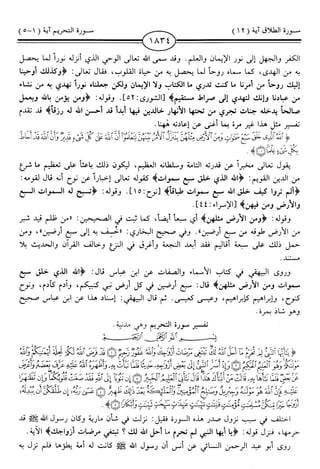 سورة الطلاق آية (١٢)
١٨٣٤
سورة التحريم آية (١-٥)
الكفر والجهل إلى نور الإيمان والعلم. وقد سمى الله تعالى الوحي الذي أنزله نوراً لما يحصل
به من الهدى، كما سماه روحاً لما يحصل به من حياة القلوب، فقال تعالى: ﴿وكذلك أوحينا
إليك روحاً من أمرنا ما كنت تدري ما الكتاب ولا الإيمان ولكن جعلناه نوراً نهدي به من نشاء
من عبادنا وإنك لتهدي إلى صراط مستقيم﴾ [الشورى: ٥٢]. وقوله: ﴿ومن يؤمن بالله ويعمل
صالحاً يدخله جنات تجري من تحتها الأنهار خالدين فيها أبداً قد أحسن الله له رزقاً﴾ قد تقدم
تفسير مثل هذا غير مرة بما أغنى عن إعادته ههنا.
يقول تعالى مخبراً عن قدرته التامة وسلطانه العظيم، ليكون ذلك باعثاً على تعظيم ما شرع
من الدين القويم: ﴿الله الذي خلق سبع سموات﴾ كقوله تعالى إخباراً عن نوح أنه قال لقومه:
﴿ألم تروا كيف خلق الله سبع سموات طباقاً﴾ [نوح: ١٥]. وقوله: ﴿تسبح له السموات السبع
والأرض ومن فيهن﴾ [الإسراء: ٤٤].
وقوله: ﴿ومن الأرض مثلهن﴾ أي سبعاً أيضاً، كما ثبت في الصحيحين: «من ظلم قيد شبر
من الأرض طوقه من سبع أرضين». وفي صحيح البخاري: «خسف به إلى سبع أرضين»، ومن
حمل ذلك على سبعة أقاليم فقد أبعد النجعة وأغرق في النزع وخالف القرآن والحديث بلا
مستند.
وروى البيهقي في كتاب الأسماء والصفات عن ابن عباس قال: ﴿الله الذي خلق سبع
سموات ومن الأرض مثلهن﴾ قال: سبع أرضين في كل أرض نبي كنبيكم، وآدم كآدم، ونوح
كنوح، وإبراهيم كإبراهيم، وعيسى كعيسى. ثم قال البيهقي: إسناد هذا عن ابن عباس صحيح
وهو شاذ بمرة.
تفسير سورة التحريم وهي مدنية.
اختلف في سبب نزول صدر هذه السورة فقيل: نزلت في شأن مارية وكان رسول الله ﷺ قد
حرمها، فنزل قوله: ﴿يا أيها النبي لم تحرم ما أحل الله لك ؟ تبتغي مرضات أزواجك﴾ الآية.
روى أبو عبد الرحمن النسائي عن أنس أن رسول الله ﷺ كانت له أمة يطؤها فلم تزل به